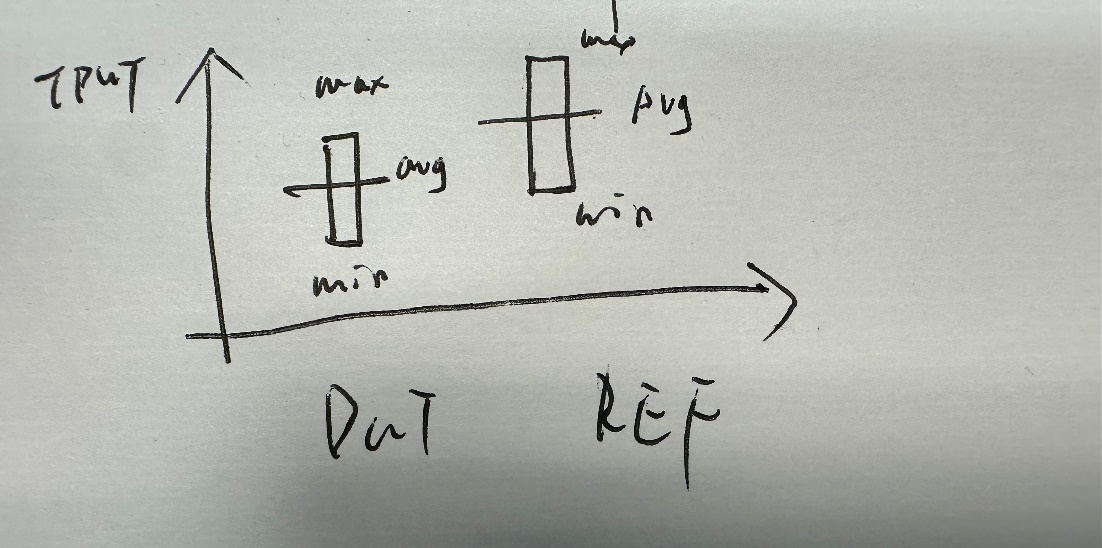 TPUT
max
avg
min
max
Avg
min
DUT
REF